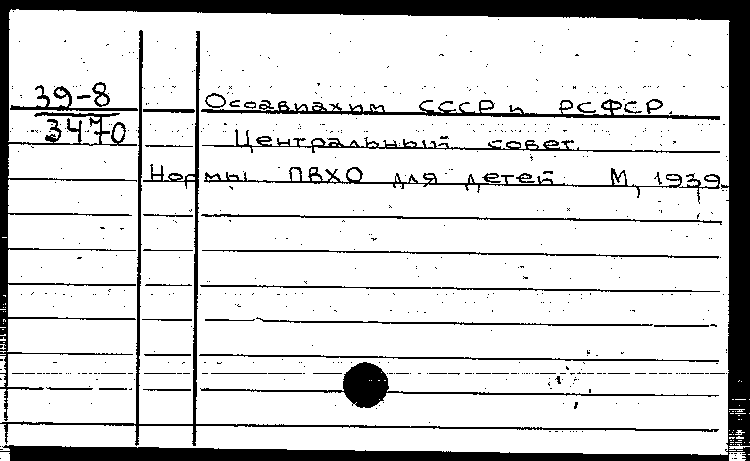 39-8
3470
Осоавиахим СССР и РСФСР.
Центральный совет.
Нормы ПВХО для детей М, 1939.